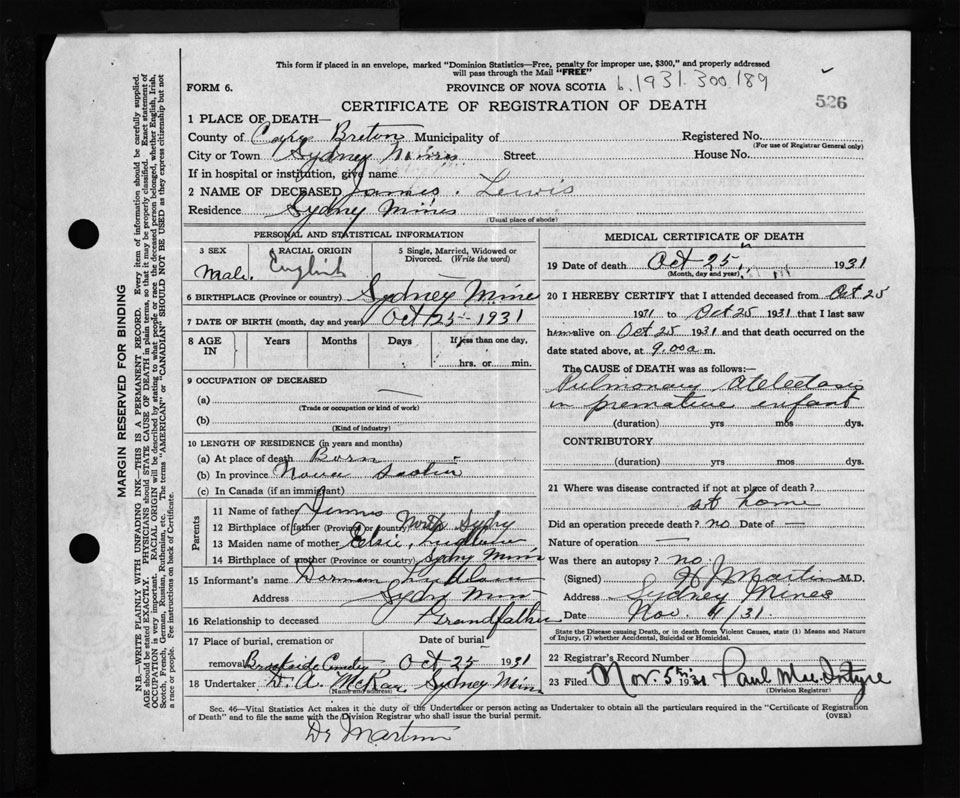 This form if placed in an envelope, marked "Dominion Statistics—Free, penalty for improper use, $300," and properly addressed
will pass through the Mail "FREE"
FORM 6. PROVINCE OF NOVA SCOTIA 6.1931.300.189
CERTIFICATE OF REGISTRATION OF DEATH 526
1 PLACE OF DEATH—
County of Cape Breton Municipality of Registered No.
(For use of Registrar General only)
City or Town Sydney Mines Street House No.
If in hospital or institution, give name
2 NAME OF DECEASED James Lewis
Residence Sydney Mines
(Usual place of abode)
PERSONAL AND STATISTICAL INFORMATION
3 SEX 4 RACIAL ORIGIN 5 Single, Married, Widowed or
Divorced. (Write the word)
Male. English
6 BIRTHPLACE (Province or country) Sydney Mines
7 DATE OF BIRTH (month, day and year) Oct 25 - 1931
8 AGE IN Years Months Days If less than one day,
hrs. or min.
9 OCCUPATION OF DECEASED
(a) —
(Trade or occupation or kind of work)
(b)
(Kind of industry)
10 LENGTH OF RESIDENCE (in years and months)
(a) At place of death Born
(b) In province Nova Scotia
(c) In Canada (if an immigrant)
Parents
11 Name of father
12 Birthplace of father (Province or country) North Sydney
13 Maiden name of mother Elsie
14 Birthplace of mother (Province or country) Sydney Mines
15 Informant's name Dorman
Address Sydney Mines
16 Relationship to deceased Grandfather
17 Place of burial, cremation or Date of burial
removal Brookside Cemetery Oct 25 1931
18 Undertaker D. A. McRae, Sydney Mines
(Name and address)
MEDICAL CERTIFICATE OF DEATH
19 Date of death Oct 25 1931
(Month, day and year)
20 I HEREBY CERTIFY that I attended deceased from Oct 25
1931 to Oct 25 1931 that I last saw
him alive on Oct 25 1931 and that death occurred on the
date stated above, at 9.00 a m.
The CAUSE of DEATH was as follows:—
Pulmonary Atelectasis
in premature infant
(duration) yrs mos dys.
CONTRIBUTORY
(duration) yrs. mos. dys.
21 Where was disease contracted if not at place of death?
at home
Did an operation precede death? no Date of —
Nature of operation —
Was there an autopsy? no
(Signed) H J Martin M.D.
Address Sydney Mines
Date Nov. 4/31
State the Disease causing Death, or in death from Violent Causes, state (1) Means and Nature
of Injury, (2) whether Accidental, Suicidal or Homicidal.
22 Registrar's Record Number
23 Filed Nov. 5th 1931 Paul MacIntyre
(Division Registrar)
Sec. 46—Vital Statistics Act makes it the duty of the Undertaker or person acting as Undertaker to obtain all the particulars required in the "Certificate of Registration
of Death" and to file the same with the Division Registrar who shall issue the burial permit. (OVER)
Dr Martin
MARGIN RESERVED FOR BINDING
N.B.—WRITE PLAINLY WITH UNFADING INK—THIS IS A PERMANENT RECORD. Every item of information should be carefully supplied.
AGE should be stated EXACTLY. PHYSICIANS should STATE CAUSE OF DEATH in plain terms, so that it may be properly classified. Exact statement of
OCCUPATION is very important. RACIAL ORIGIN will be described by stating to what people or race the deceased person belonged, whether English, Irish,
Scotch, French, German, Russian, Ruthenian, etc. The terms "AMERICAN" or "CANADIAN" SHOULD NOT BE USED as they express citizenship but not
a race or people. Fee instructions on back of Certificate.